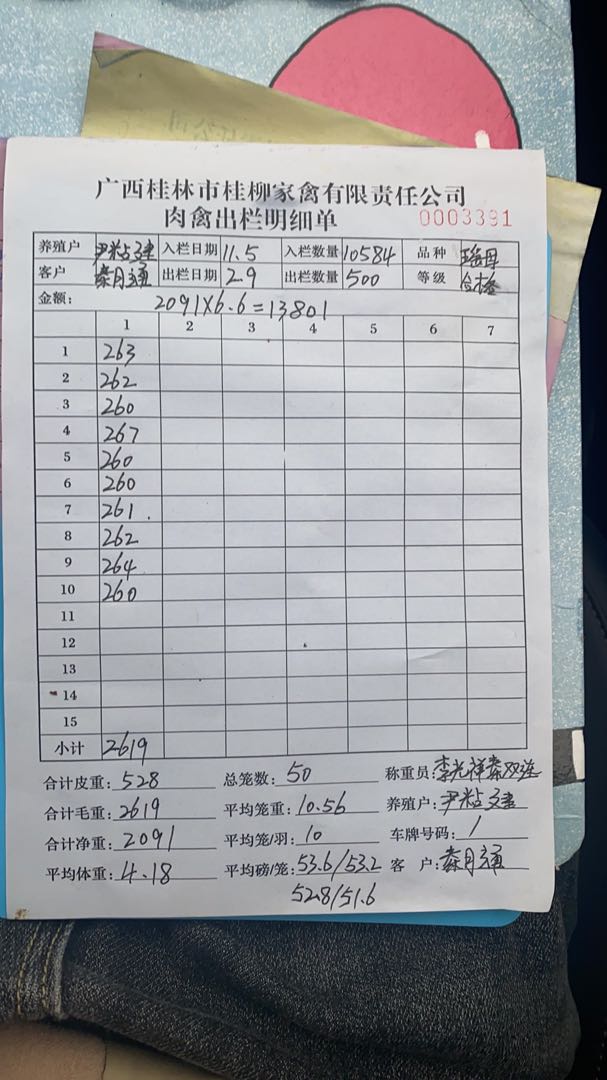 广西桂林市桂柳家禽有限责任公司
肉禽出栏明细单 0003391
养殖户 尹粘建 入栏日期 11.5 入栏数量 10584 品种 瑶母
客户 秦月通 出栏日期 2.9 出栏数量 500 等级 合格
金额: 2091×6.6=13801
1 2 3 4 5 6 7
1 263
2 262
3 260
4 267
5 260
6 260
7 261
8 262
9 264
10 260
11
12
13
14
15
小计 2619
合计皮重: 528 总笼数: 50 称重员: 李光祥秦双连
合计毛重: 2619 平均笼重: 10.56 养殖户: 尹粘建
合计净重: 2091 平均笼/羽: 10 车牌号码: /
平均体重: 4.18 平均磅/笼: 53.6/53.2 客户: 秦月通
52.8/51.6